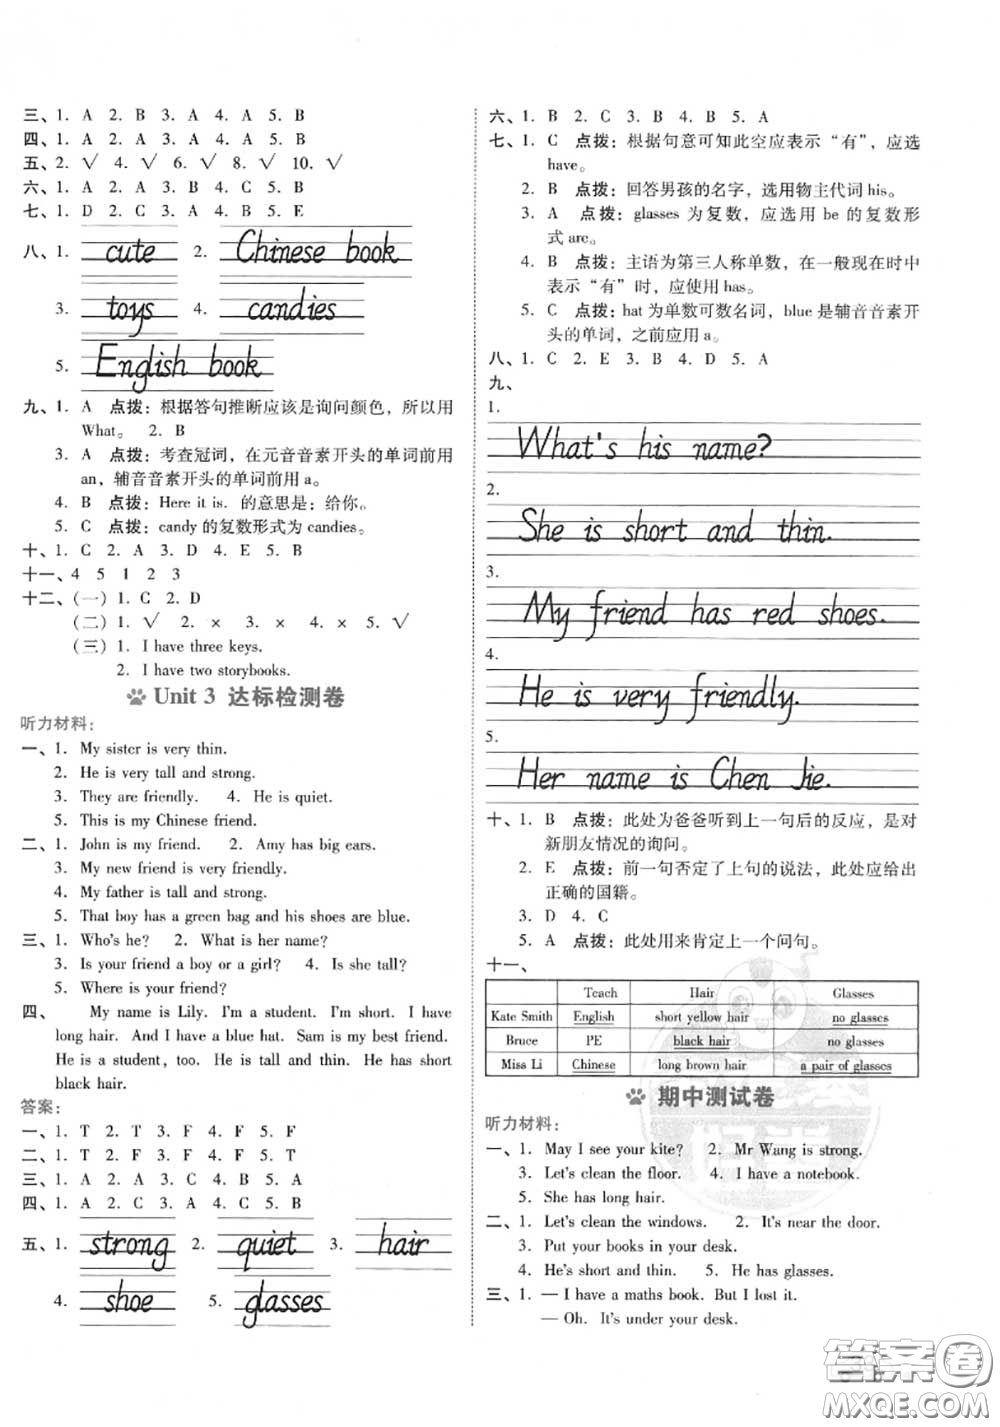 三、1. A 2. B 3. A 4. A 5. B
四、1. A 2. A 3. A 4. A 5. B
五、2. √ 4. √ 6. √ 8. √ 10. √
六、1. A 2. A 3. B 4. C 5. B
七、1. D 2. C 3. A 4. B 5. E
八、1. cute 2. Chinese book
3. toys 4. candies
5. English book
九、1. A 点拨：根据答句推断应该是询问颜色，所以用
What。 2. B
3. A 点拨：考查冠词，在元音音素开头的单词前用
an，辅音音素开头的单词前用 a。
4. B 点拨：Here it is. 的意思是：给你。
5. C 点拨：candy 的复数形式为 candies。
十、1. C 2. A 3. D 4. E 5. B
十一、4 5 1 2 3
十二、(一) 1. C 2. D
(二) 1. √ 2. × 3. × 4. × 5. √
(三) 1. I have three keys.
2. I have two storybooks.
Unit 3 达标检测卷
听力材料：
一、1. My sister is very thin.
2. He is very tall and strong.
3. They are friendly. 4. He is quiet.
5. This is my Chinese friend.
二、1. John is my friend. 2. Amy has big ears.
3. My new friend is very friendly.
4. My father is tall and strong.
5. That boy has a green bag and his shoes are blue.
三、1. Who's he? 2. What is her name?
3. Is your friend a boy or a girl? 4. Is she tall?
5. Where is your friend?
四、 My name is Lily. I'm a student. I'm short. I have
long hair. And I have a blue hat. Sam is my best friend.
He is a student, too. He is tall and thin. He has short
black hair.
答案：
一、1. T 2. T 3. F 4. F 5. F
二、1. T 2. F 3. F 4. F 5. T
三、1. A 2. A 3. C 4. B 5. A
四、1. A 2. C 3. A 4. C 5. B
五、1. strong 2. quiet 3. hair
4. shoe 5. glasses
六、1. B 2. C 3. B 4. B 5. A
七、1. C 点拨：根据句意可知此空应表示“有”，应选
have。
2. B 点拨：回答男孩的名字，选用物主代词 his。
3. A 点拨：glasses 为复数，应选用 be 的复数形
式 are。
4. B 点拨：主语为第三人称单数，在一般现在时中
表示“有”时，应使用 has。
5. C 点拨：hat 为单数可数名词，blue 是辅音音素开
头的单词，之前应用 a。
八、1. C 2. E 3. B 4. D 5. A
九、
1.
What's his name?
2.
She is short and thin.
3.
My friend has red shoes.
4.
He is very friendly.
5.
Her name is Chen Jie.
十、1. B 点拨：此处为爸爸听到上一句后的反应，是对
新朋友情况的询问。
2. E 点拨：前一句否定了上句的说法，此处应给出
正确的国籍。
3. D 4. C
5. A 点拨：此处用来肯定上一个问句。
十一、
Teach Hair Glasses
Kate Smith English short yellow hair no glasses
Bruce PE black hair no glasses
Miss Li Chinese long brown hair a pair of glasses
期中测试卷
听力材料：
一、1. May I see your kite? 2. Mr Wang is strong.
3. Let's clean the floor. 4. I have a notebook.
5. She has long hair.
二、1. Let's clean the windows. 2. It's near the door.
3. Put your books in your desk.
4. He's short and thin. 5. He has glasses.
三、1. — I have a maths book. But I lost it.
— Oh. It's under your desk.
答案卷
MXQE.COM